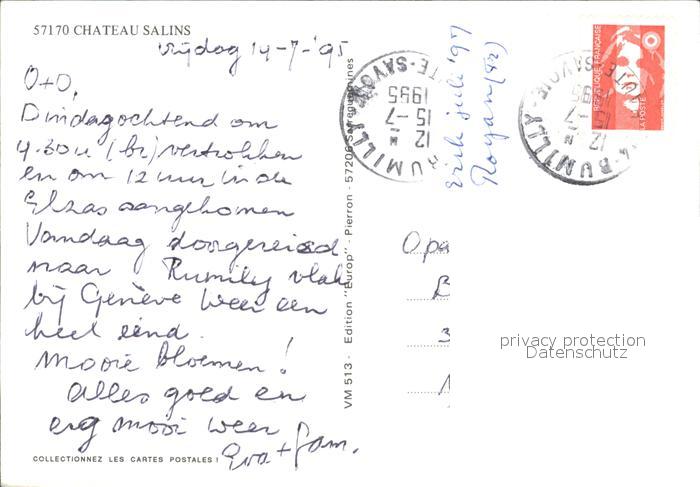 57170 CHATEAU SALINS
Vrijdag 14-7-'95
O+O,
Dindagochtend om
4.30u (br) vertrokken
en om 12 uur in de
Elzas aangekomen
Vandaag doorgereisd
naar Rumily vlak
bij Genève weer een
heel eind.
Mooie bloemen!
Alles goed en
erg mooi weer
Eva + fam.
COLLECTIONNEZ LES CARTES POSTALES !
VM 513 - Edition "Europ" - Pierron - 57206 Sarreguemines
RUMILLY
HTE-SAVOIE
12 H
15-7
1995
Erik juli '97
Royan (92)
REPUBLIQUE FRANÇAISE
LA POSTE
RUMILLY
HAUTE-SAVOIE
12 H
15-7
1995
Opa
B
3
privacy protection
Datenschutz